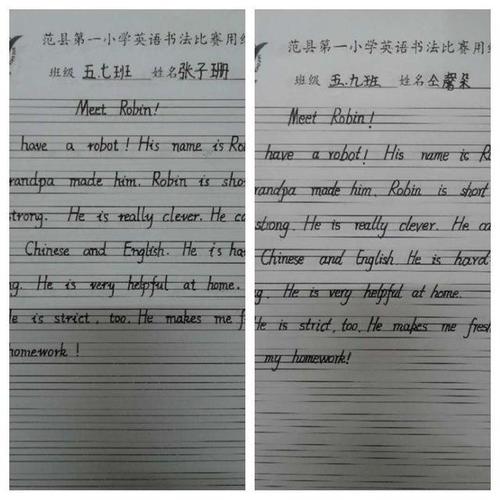 范县第一小学英语书法比赛用
班级 五.七班 姓名 张子珊
Meet Robin!
have a robot! His name is Ro
randpa made him. Robin is sho
strong. He is really clever. He ca
Chinese and English. He is ha
g. He is very helpful at home.
He is strict, too. He makes me f
homework!
范县第一小学英语书法比赛用
班级 五.九班 姓名 仝馨朵
Meet Robin!
have a robot! His name is R
randpa made him. Robin is short
strong. He is really clever. He ca
Chinese and English. He is hard
g. He is very helpful at home.
He is strict, too. He makes me fres
my homework!